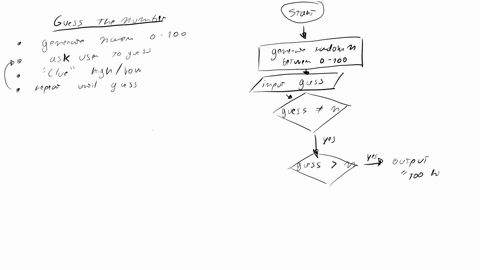 Guess The Number
generate num 0-100
ask user to guess
"Clue" high/low
repeat until guess
START
generate random n
between 0-100
input guess
guess ≠ n
yes
guess > n
yes
OUTPUT
"TOO